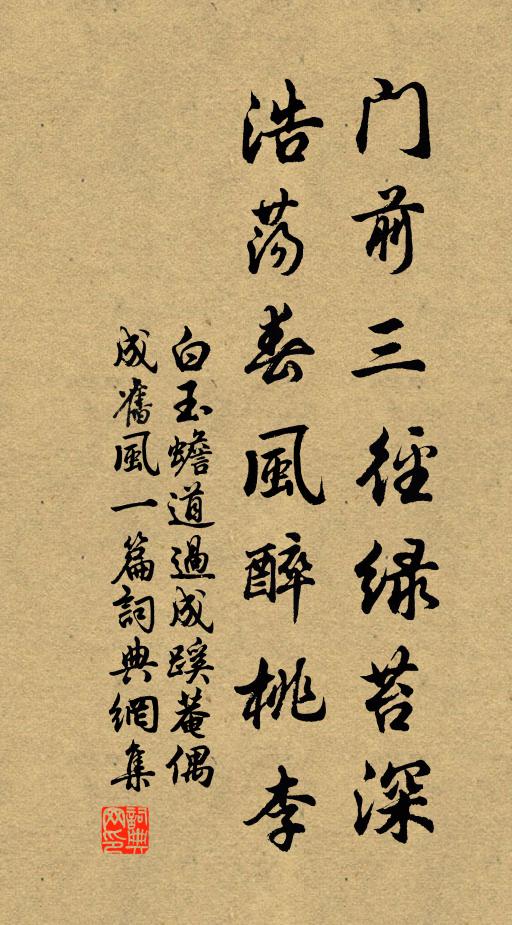 门前三徑绿苔深
浩蕩春風醉桃李
白玉蟾道過成蹊菴偶
成舊風一篇詞典網集
詞典网印